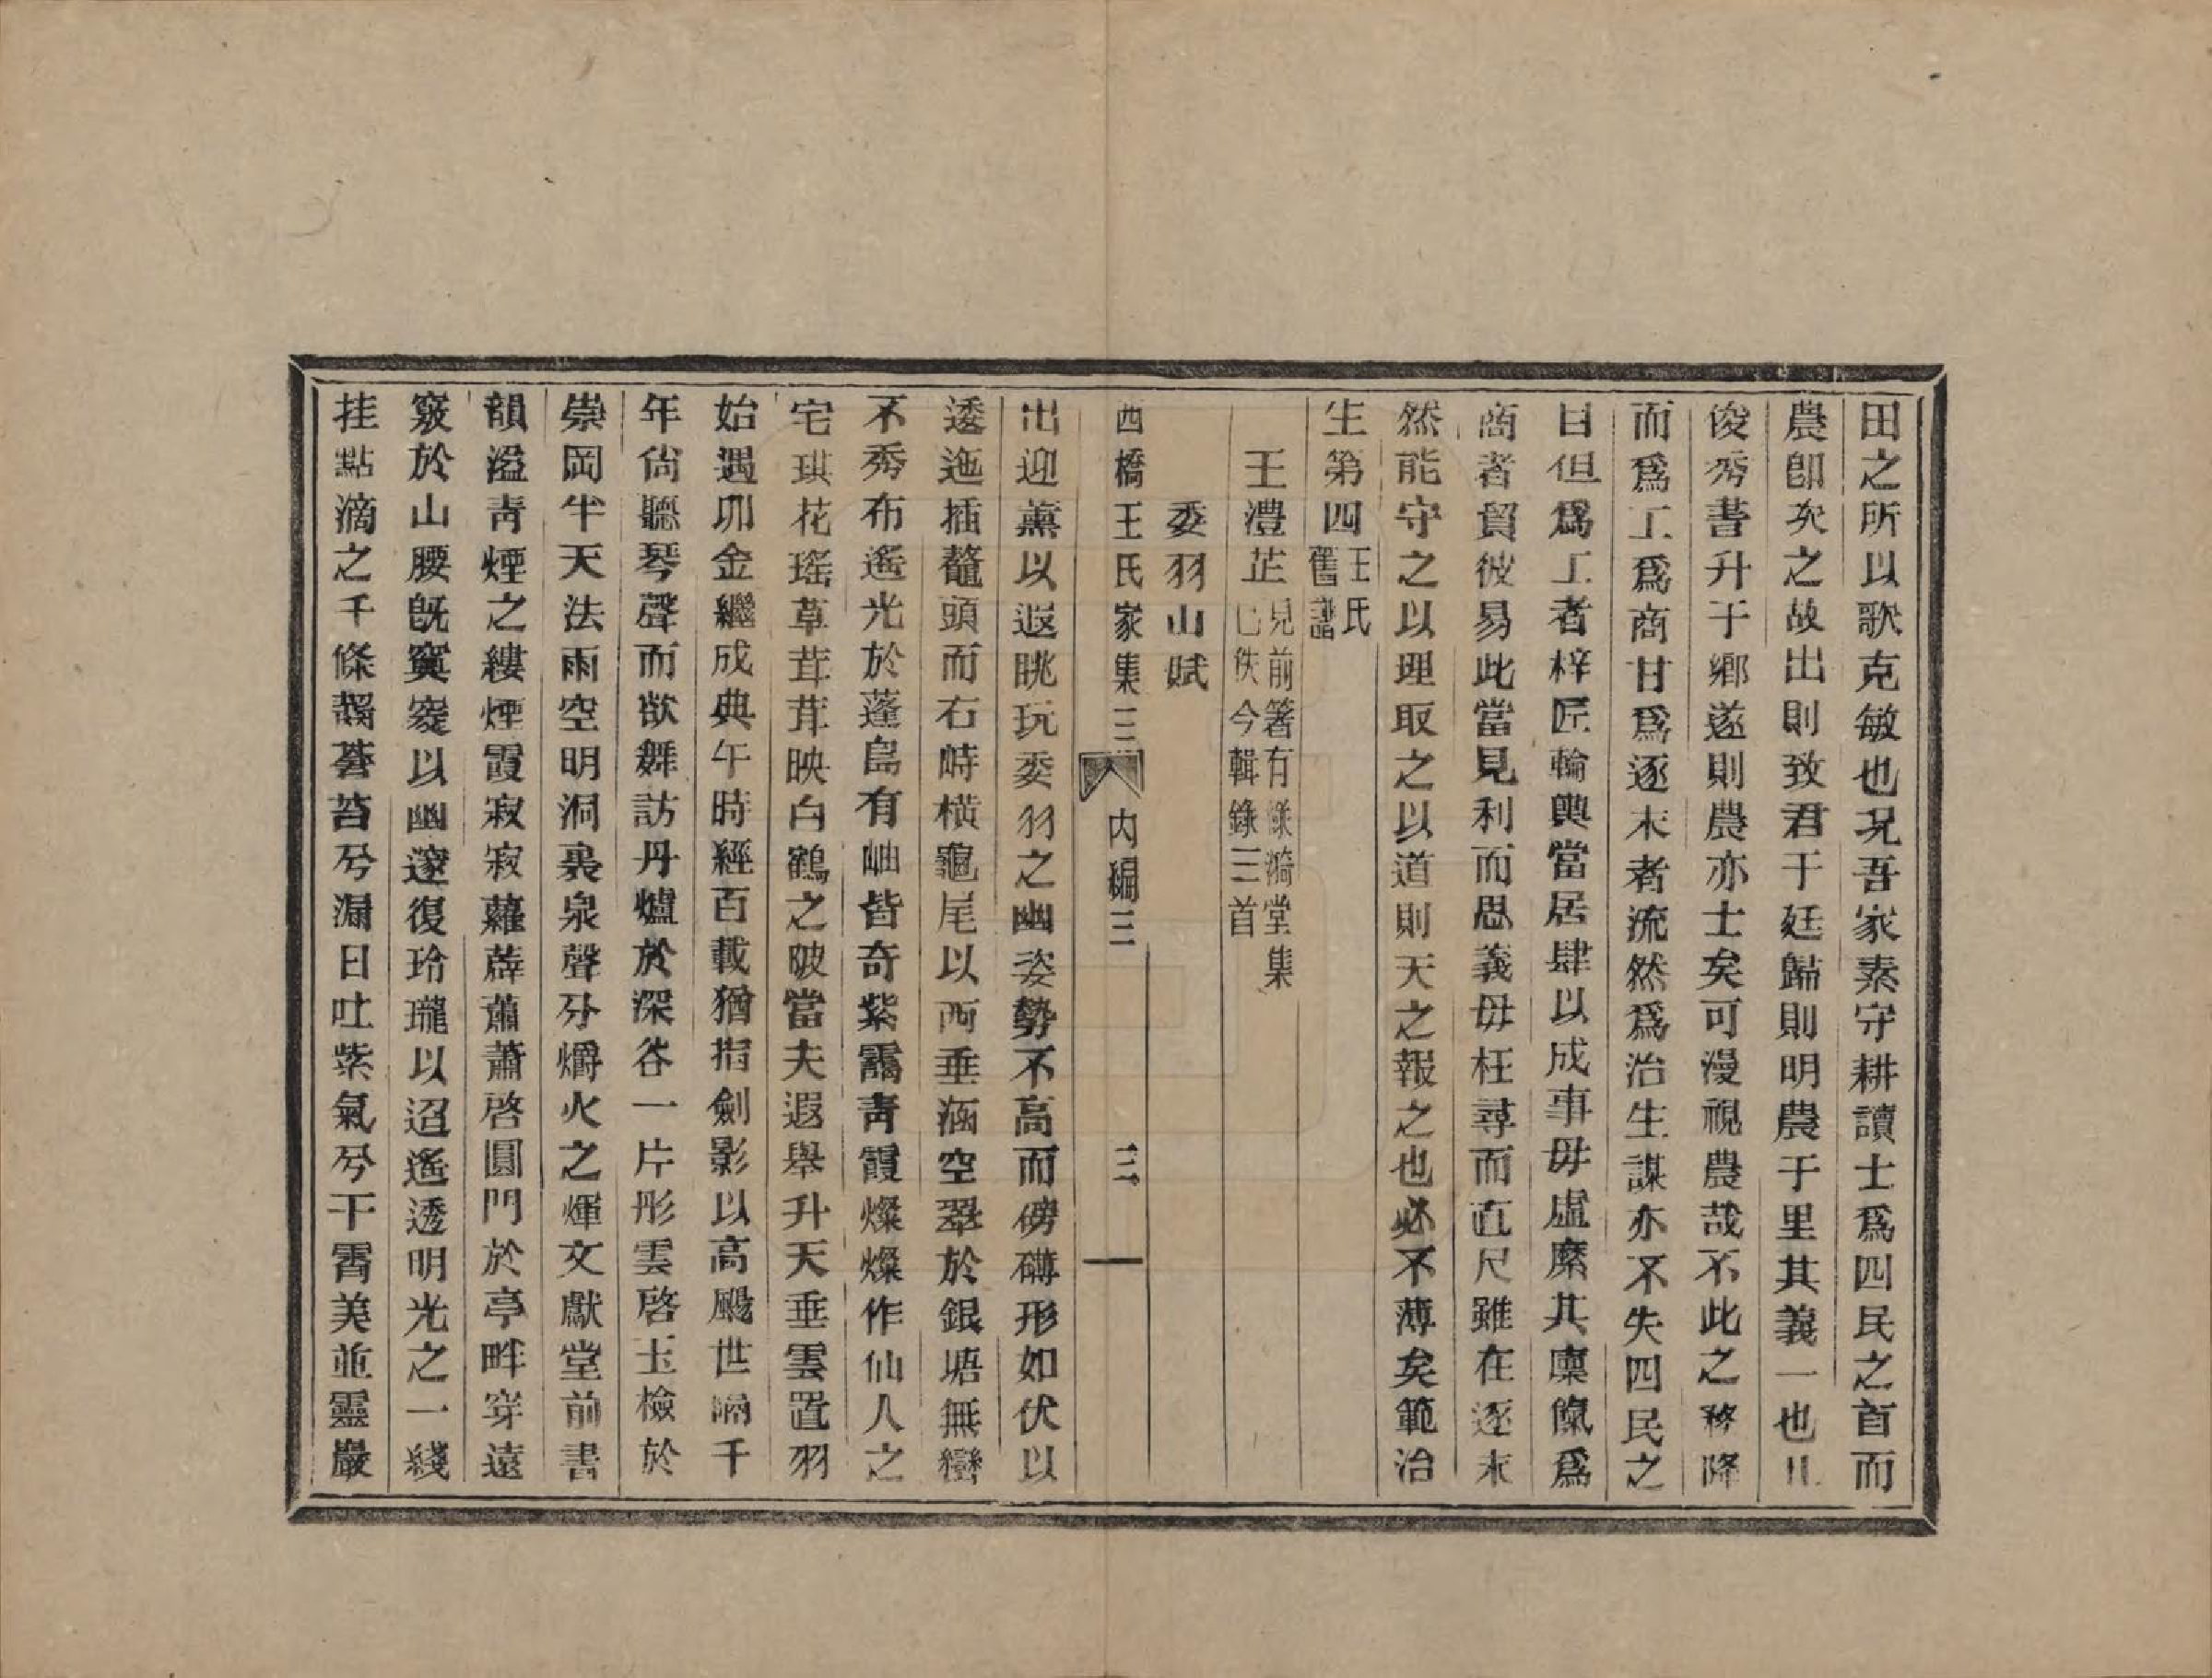 田之所以歌克敏也况吾家素守耕讀士爲四民之首而
農卽次之故出則致君于廷歸則明農于里其義一也且
俊秀書升于鄉遂則農亦士矣可漫視農哉不此之務降
而爲工爲商甘爲逐末者流然爲治生謀亦不失四民之
目但爲工者梓匠輪輿當居肆以成事毋虛縻其廩餼爲
商者貿彼易此當見利而思義毋枉尋而直尺雖在逐末
然能守之以理取之以道則天之報之也必不薄矣範治
生第四王氏舊譜
王澧芷見前箸有㵝漪堂集已佚今輯錄三首
委羽山賦
西橋王氏家集三 內編三 三
出迎薰以遐眺玩委羽之幽姿勢不高而磅礴形如伏以
逶迤插鼇頭而右峙橫龜尾以西垂涵空翠於銀塘無巒
不秀布遙光於蓬島有岫皆奇紫靄青霞燦燦作仙人之
宅琪花瑤草茸茸映白鶴之陂當夫遐舉升天垂雲置羽
始遇卯金繼成典午時經百載猶指劍影以高颺世隔千
年尙聽琴聲而欲舞訪丹爐於深谷一片彤雲啓玉檢於
崇岡半天法雨空明洞裏泉聲分爝火之煇文獻堂前書
韻溢青煙之縷煙霞寂寂蘿薜蕭蕭啓圓門於亭畔穿遠
竅於山腰旣窦窱以幽邃復玲瓏以迢遙透明光之一綫
挂點滴之千條靄蒼苔兮漏日吐紫氣兮干霄美並靈巖